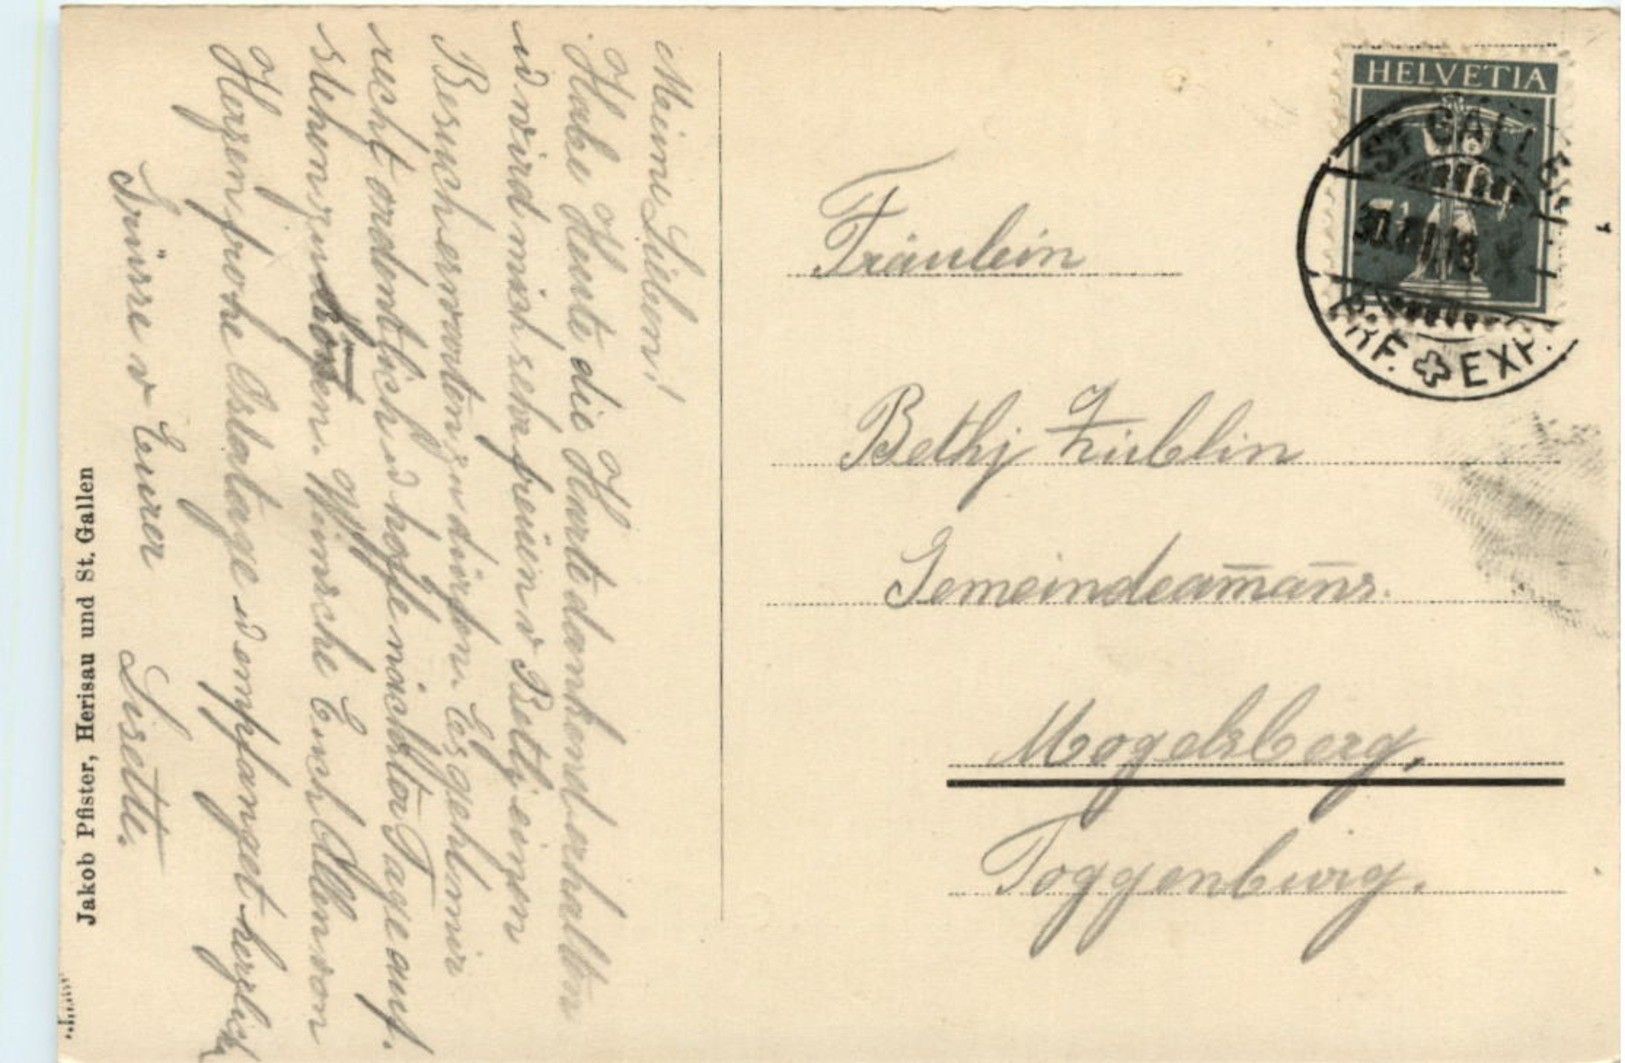 Meine Lieben!
Habe Heute die Karte dankend erhalten
u wird mich sehr freuen v Bethj einen
Besuch erwarten zu dürfen. Es geht mir
recht ordentlich u hoffe nächster Tage auf-
stehen zu können. Wünsche Euch Allen von
Herzen frohe Ostertage u empfanget herzlich
Grüsse v Eurer Lisette.
Jakob Pfister, Herisau und St. Gallen
HELVETIA
ST. GALLEN
BRF. EXP.
Fräulein
Bethj Züblin
Gemeindeam̅an̅s.
Mogelsberg,
Toggenburg.